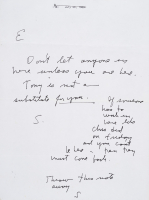 E
Don't let anyone in
here unless you are here.
Tony is not a
substitute for you.
If someone
has to
work in
here
on Tuesday
and you can't
be here - then Tony
must come back.
S
Throw this note
away
S